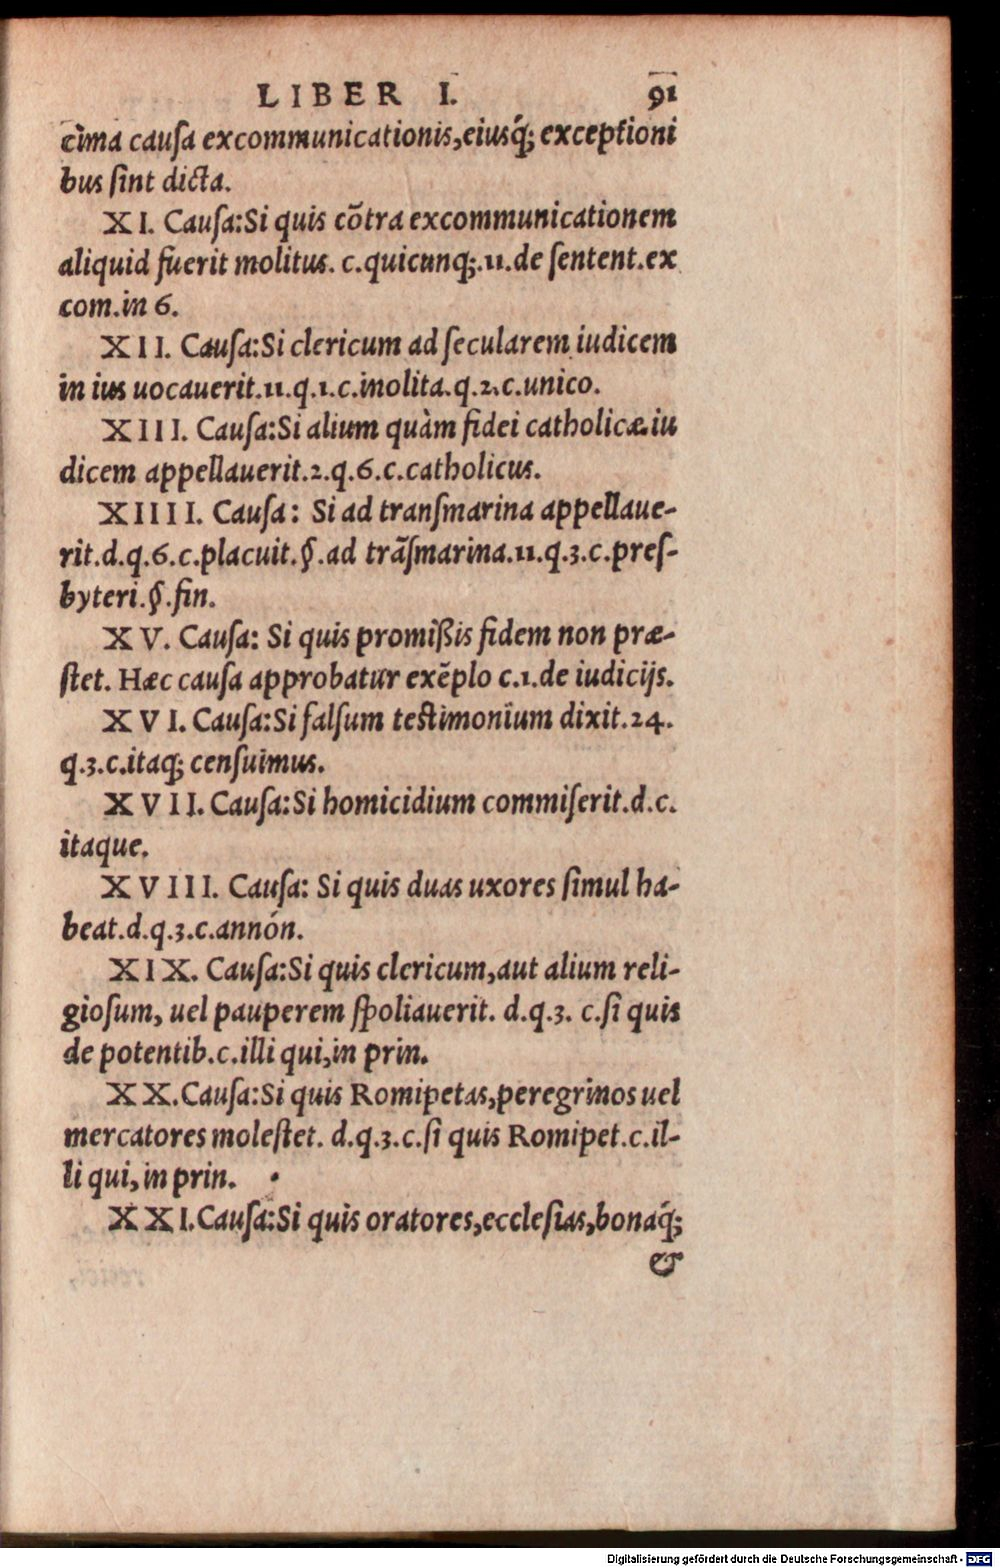 LIBER I. 91
cima causa excommunicationis,eiusq́; exceptioni
bus ſint dicta.
XI. Cauſa:Si quis cõtra excommunicationem
aliquid fuerit molitus. c.quicunq;.11.de ſentent.ex
com.in 6.
XII. Cauſa:Si clericum ad ſecularem iudicem
in ius uocauerit.11.q.1.c.inolita.q.2.c.unico.
XIII. Cauſa:Si alium quàm fidei catholicæ iu
dicem appellauerit.2.q.6.c.catholicus.
XIIII. Cauſa: Si ad tranſmarina appellaue-
rit.d.q.6.c.placuit.§.ad trãſmarina.11.q.3.c.preſ-
byteri.§.fin.
XV. Cauſa: Si quis promißis fidem non præ-
ſtet. Hæc cauſa approbatur exẽplo c.1.de iudicijs.
XVI. Cauſa:Si falſum teſtimonium dixit.24.
q.3.c.itaq; cenſuimus.
XVII. Cauſa:Si homicidium commiſerit.d.c.
itaque.
XVIII. Cauſa: Si quis duas uxores ſimul ha-
beat.d.q.3.c.annón.
XIX. Cauſa:Si quis clericum,aut alium reli-
gioſum, uel pauperem ſpoliauerit. d.q.3. c.ſi quis
de potentib.c.illi qui,in prin.
XX.Cauſa:Si quis Romipetas,peregrinos uel
mercatores moleſtet. d.q.3.c.ſi quis Romipet.c.il-
li qui,in prin.
XXI.Cauſa:Si quis oratores,eccleſias,bonaq́;
&
Digitalisierung gefördert durch die Deutsche Forschungsgemeinschaft - DFG